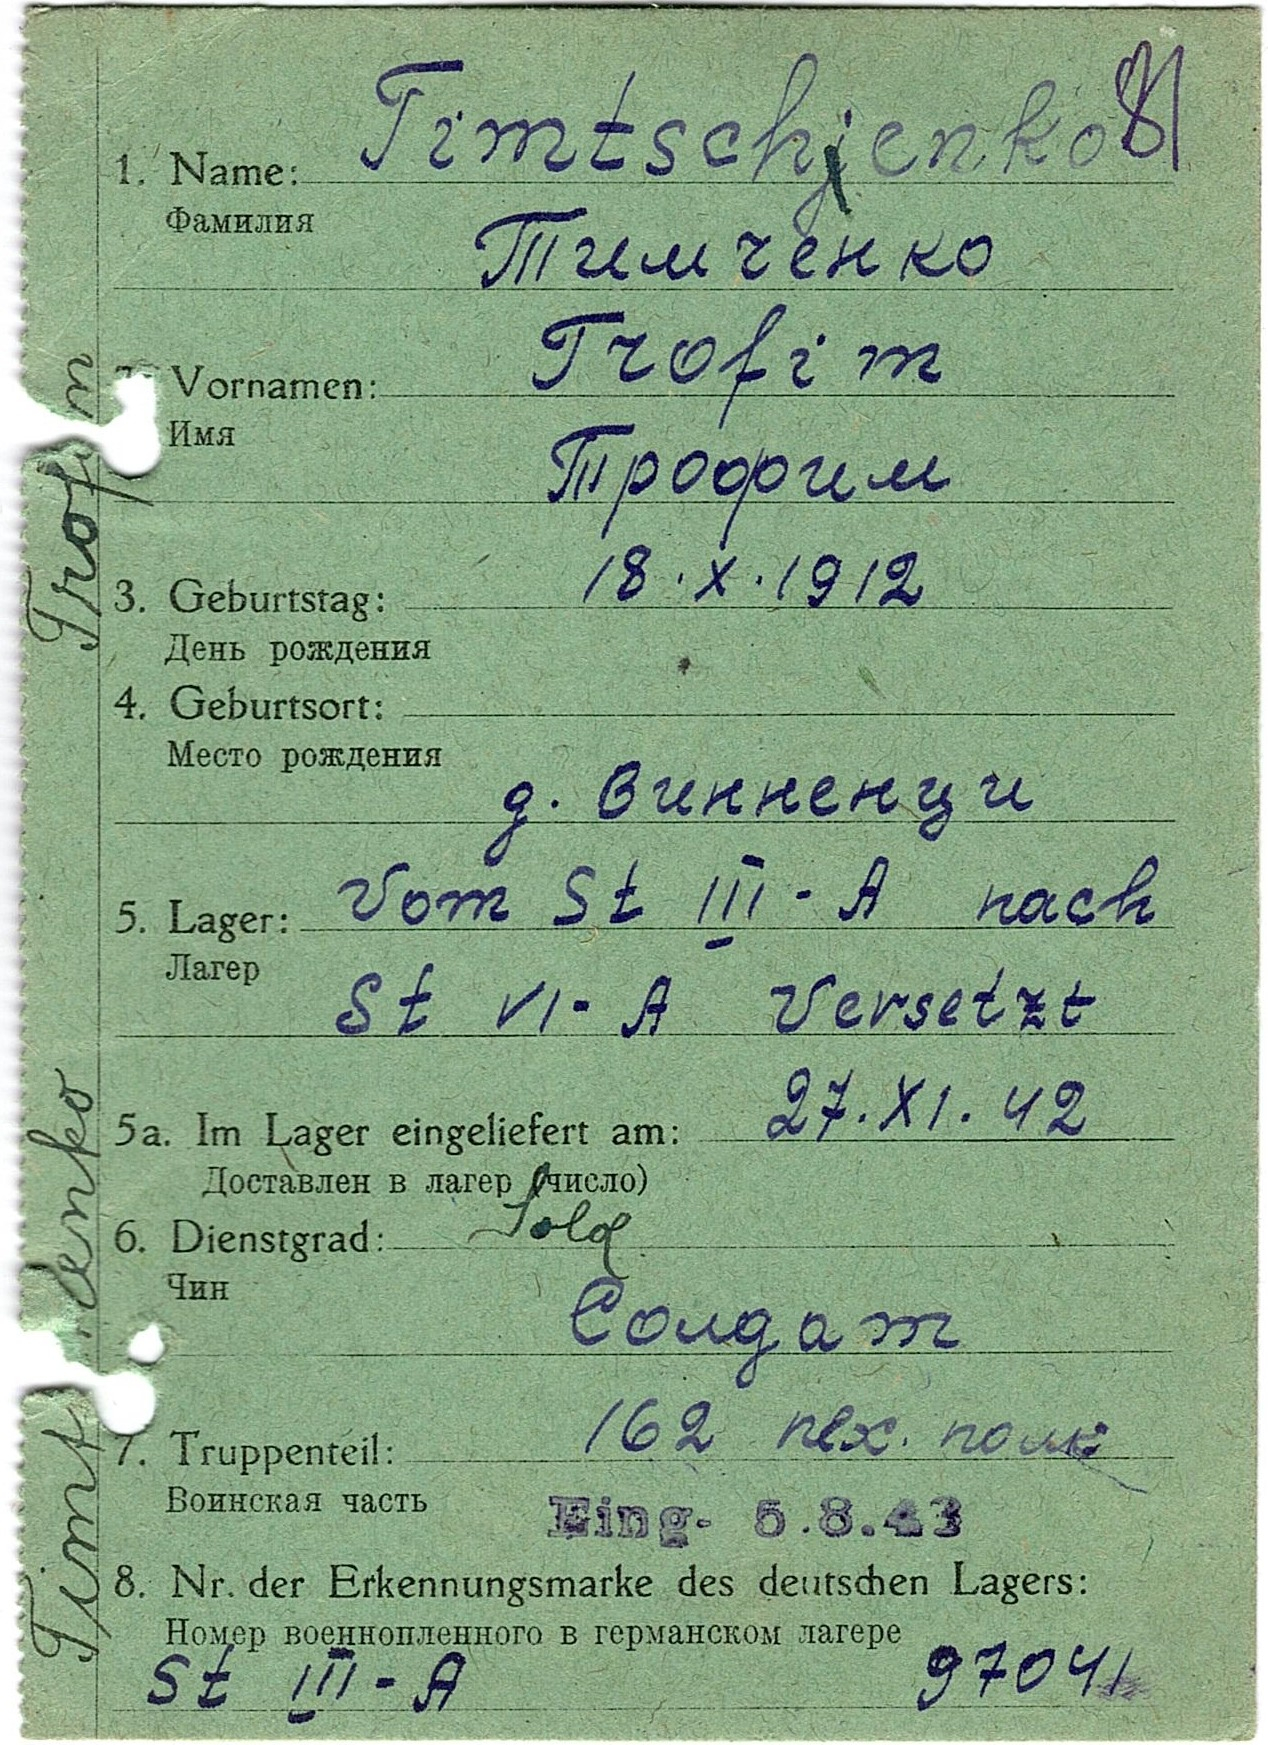 Timtschjenko 81
1. Name:
Фамилия
Тимченко
Trofim
Vornamen:
Имя
Трофим
18.X.1912
3. Geburtstag:
День рождения
4. Geburtsort:
Место рождения
д. Винненци
Vom St III-A nach
5. Lager:
Лагер
St VI-A Versetzt
27.XI.42
5a. Im Lager eingeliefert am:
Доставлен в лагер (число)
Sold
6. Dienstgrad:
Чин
Солдат
162 пех. полк
7. Truppenteil:
Воинская часть
Eing. 5.8.43
8. Nr. der Erkennungsmarke des deutschen Lagers:
Номер военнопленного в германском лагере
St III-A 97041
Timt enko Trofim